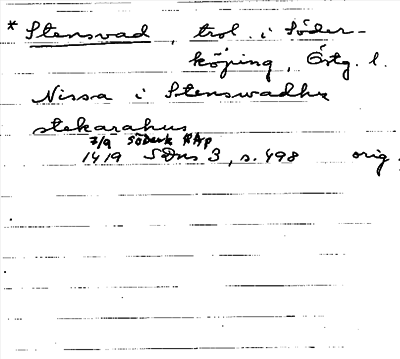 * Stensvad, trol. i Söder-
köping, Östg. l.
Nissa i Stenswadhz
stekarahus
7/9 Söderk RAp
1419 SDns 3, s. 498 orig.